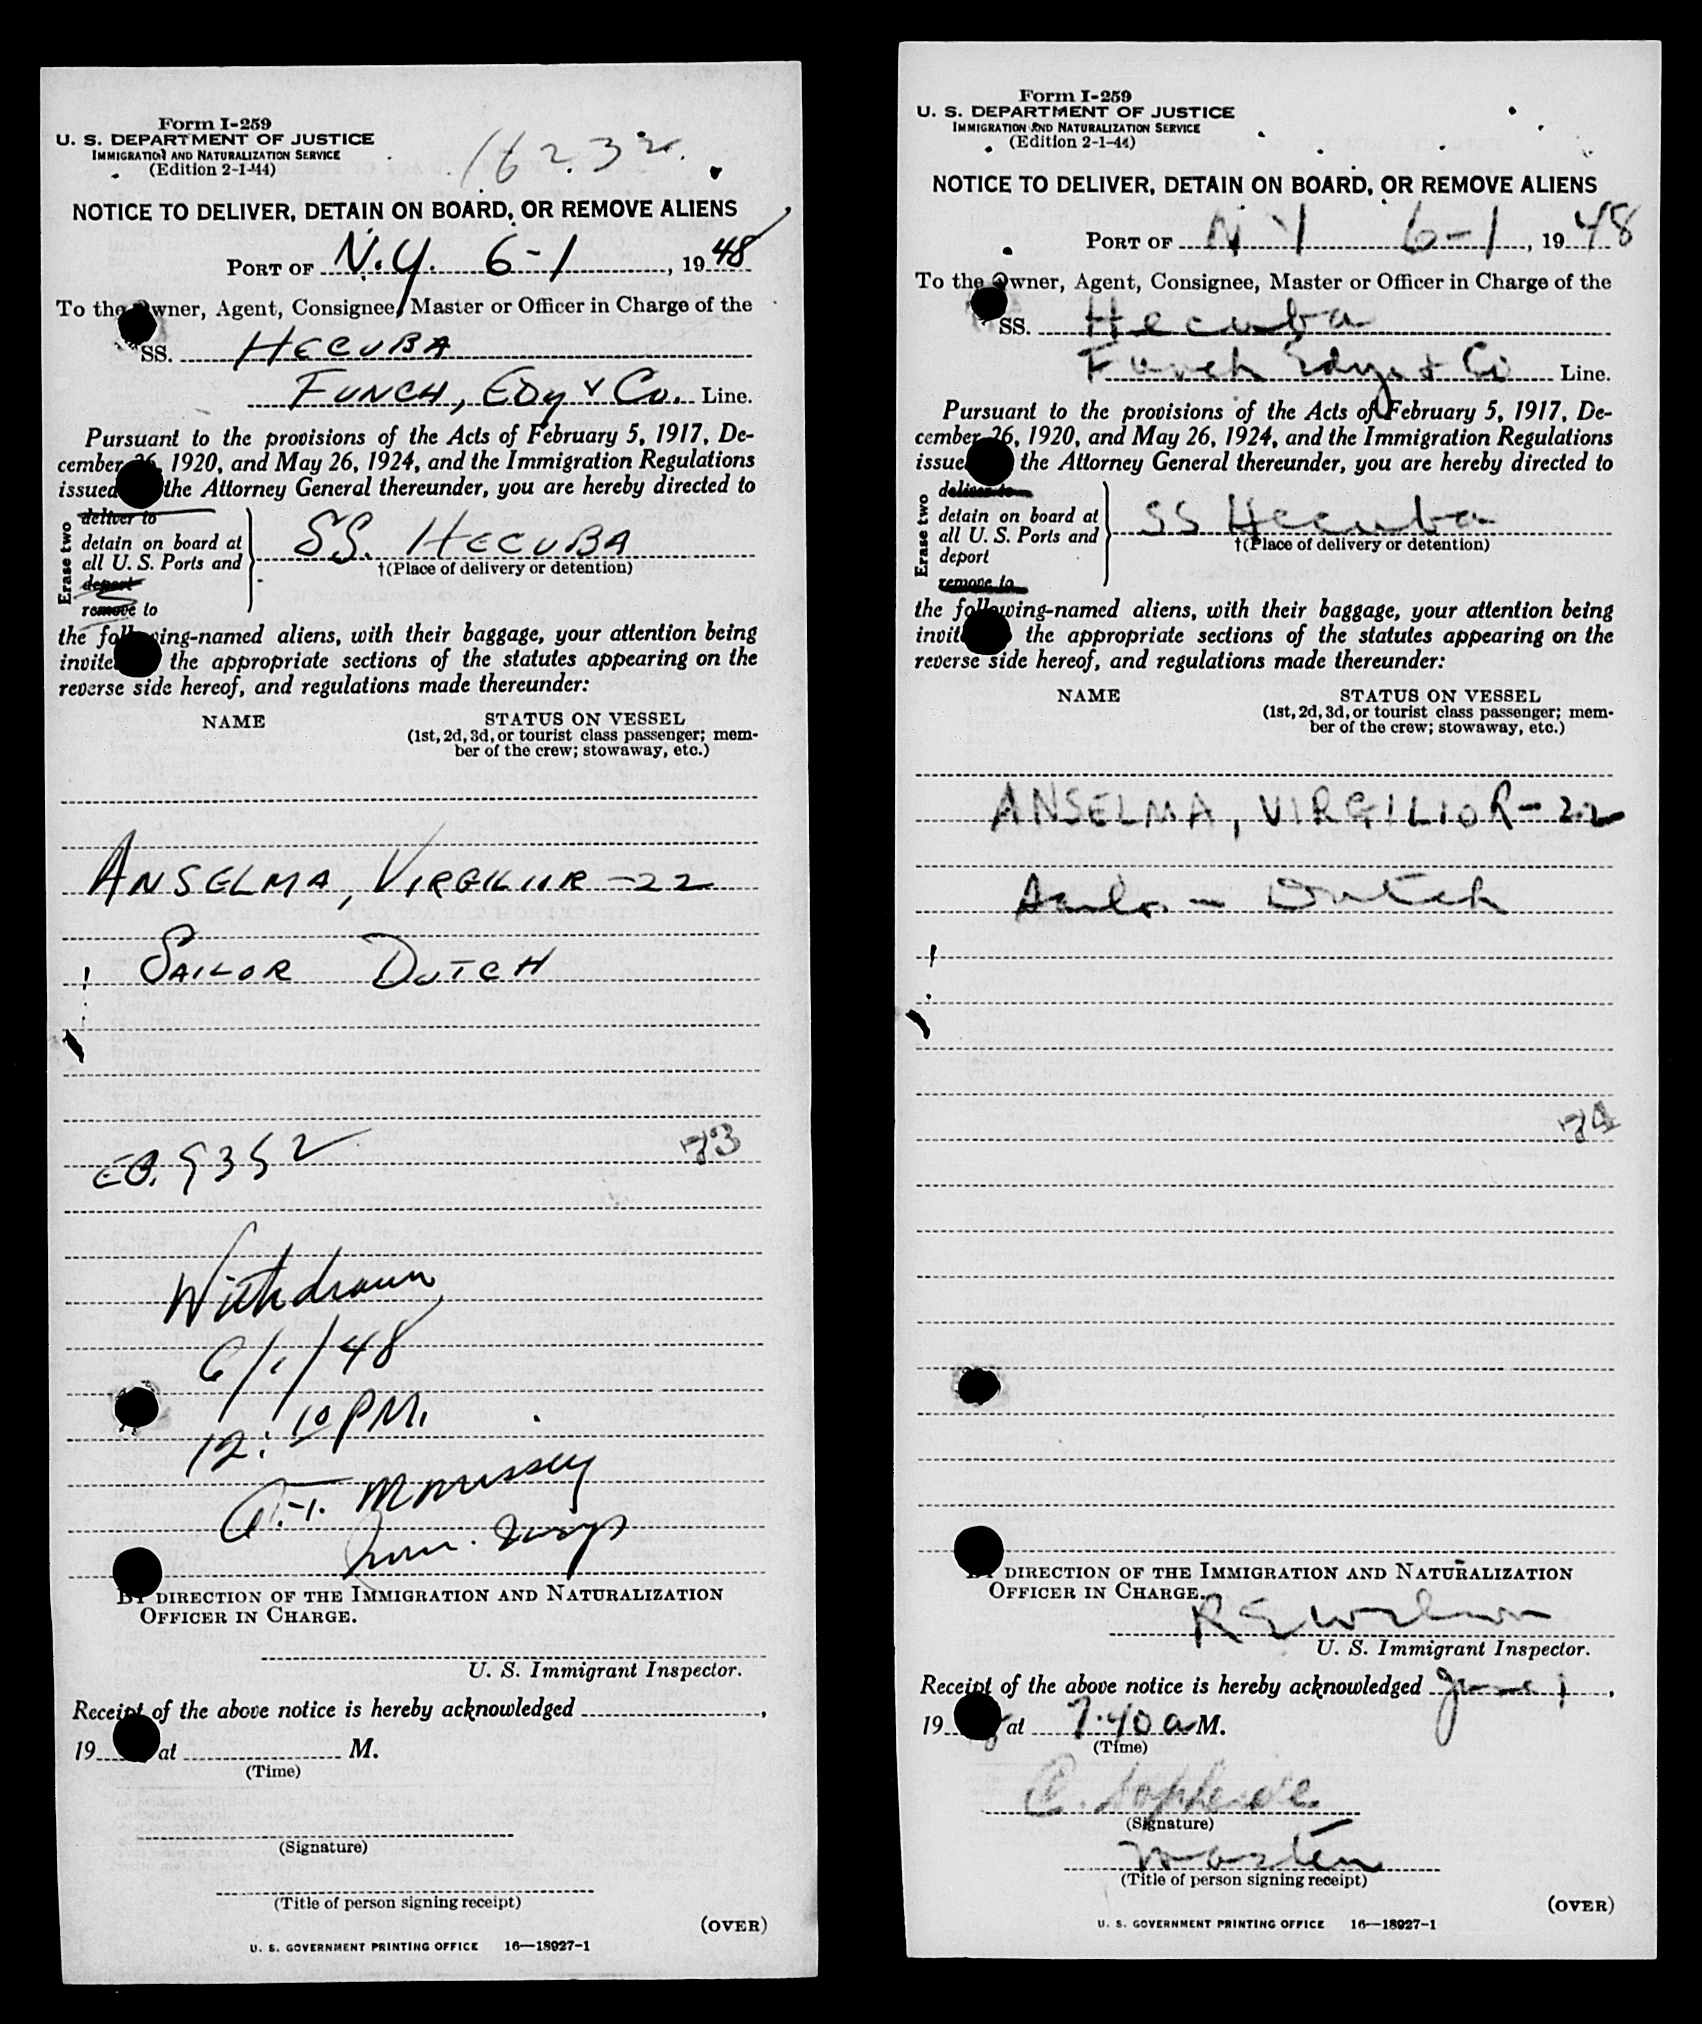 Form I-259
U. S. DEPARTMENT OF JUSTICE
IMMIGRATION AND NATURALIZATION SERVICE
(Edition 2-1-44)
16232
NOTICE TO DELIVER, DETAIN ON BOARD, OR REMOVE ALIENS
PORT OF N.Y. 6-1, 1948
To the Owner, Agent, Consignee, Master or Officer in Charge of the
SS. HECUBA
FUNCH, EDY & CO. Line.
Pursuant to the provisions of the Acts of February 5, 1917, De-
cember 26, 1920, and May 26, 1924, and the Immigration Regulations
issued the Attorney General thereunder, you are hereby directed to
Erase two
deliver to
detain on board at
all U. S. Ports and
deport
remove to
SS. HECUBA
†(Place of delivery or detention)
the following-named aliens, with their baggage, your attention being
invite the appropriate sections of the statutes appearing on the
reverse side hereof, and regulations made thereunder:
NAME STATUS ON VESSEL
(1st, 2d, 3d, or tourist class passenger; mem-
ber of the crew; stowaway, etc.)
ANSELMA, VIRGILIIR -22
SAILOR DUTCH
EO. 9352
73
Withdrawn
6/1/48
12:10 PM.
Morrissey
BY DIRECTION OF THE IMMIGRATION AND NATURALIZATION
OFFICER IN CHARGE.
U. S. Immigrant Inspector.
Receipt of the above notice is hereby acknowledged ,
19 at M.
(Time)
(Signature)
(Title of person signing receipt)
(OVER)
U. S. GOVERNMENT PRINTING OFFICE 16—18927-1
Form I-259
U. S. DEPARTMENT OF JUSTICE
IMMIGRATION AND NATURALIZATION SERVICE
(Edition 2-1-44)
NOTICE TO DELIVER, DETAIN ON BOARD, OR REMOVE ALIENS
PORT OF N Y 6-1, 1948
To the Owner, Agent, Consignee, Master or Officer in Charge of the
SS. Hecuba
Funch Edye & Co Line.
Pursuant to the provisions of the Acts of February 5, 1917, De-
cember 26, 1920, and May 26, 1924, and the Immigration Regulations
issue the Attorney General thereunder, you are hereby directed to
Erase two
deliver to
detain on board at
all U. S. Ports and
deport
remove to
SS Hecuba
†(Place of delivery or detention)
the following-named aliens, with their baggage, your attention being
invit the appropriate sections of the statutes appearing on the
reverse side hereof, and regulations made thereunder:
NAME STATUS ON VESSEL
(1st, 2d, 3d, or tourist class passenger; mem-
ber of the crew; stowaway, etc.)
ANSELMA, VIRGILIOR-22
Sailor - Dutch
74
BY DIRECTION OF THE IMMIGRATION AND NATURALIZATION
OFFICER IN CHARGE.
R E Wilson
U. S. Immigrant Inspector.
Receipt of the above notice is hereby acknowledged June 1,
19 8 at 7.40 a M.
(Time)
(Signature)
Master
(Title of person signing receipt)
(OVER)
U. S. GOVERNMENT PRINTING OFFICE 16—18927-1